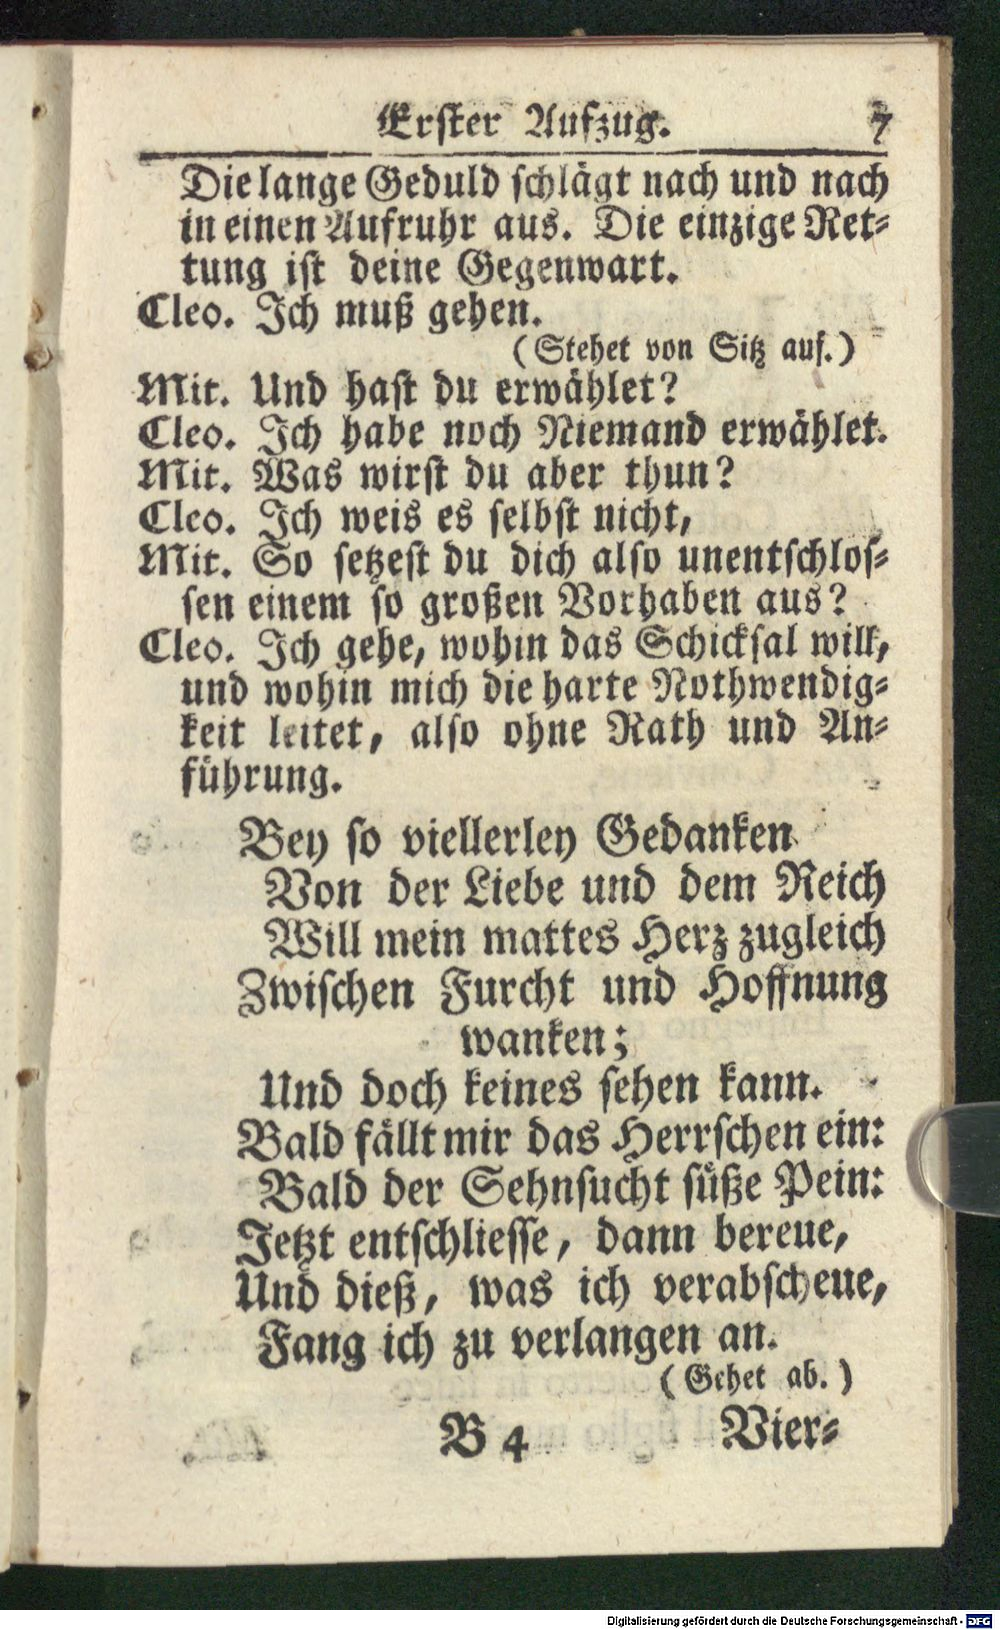 Erster Aufzug. 7
Die lange Geduld schlägt nach und nach
in einen Aufruhr aus. Die einzige Ret-
tung ist deine Gegenwart.
Cleo. Ich muß gehen.
(Stehet von Sitz auf.)
Mit. Und hast du erwählet?
Cleo. Ich habe noch Niemand erwählet.
Mit. Was wirst du aber thun?
Cleo. Ich weis es selbst nicht,
Mit. So setzest du dich also unentschlos-
sen einem so großen Vorhaben aus?
Cleo. Ich gehe, wohin das Schicksal will,
und wohin mich die harte Nothwendig-
keit leitet, also ohne Rath und An-
führung.
Bey so viellerley Gedanken
Von der Liebe und dem Reich
Will mein mattes Herz zugleich
Zwischen Furcht und Hoffnung
wanken;
Und doch keines sehen kann.
Bald fällt mir das Herrschen ein:
Bald der Sehnsucht süße Pein:
Jetzt entschliesse, dann bereue,
Und dieß, was ich verabscheue,
Fang ich zu verlangen an.
(Gehet ab.)
B 4 Vier-
Digitalisierung gefördert durch die Deutsche Forschungsgemeinschaft - DFG